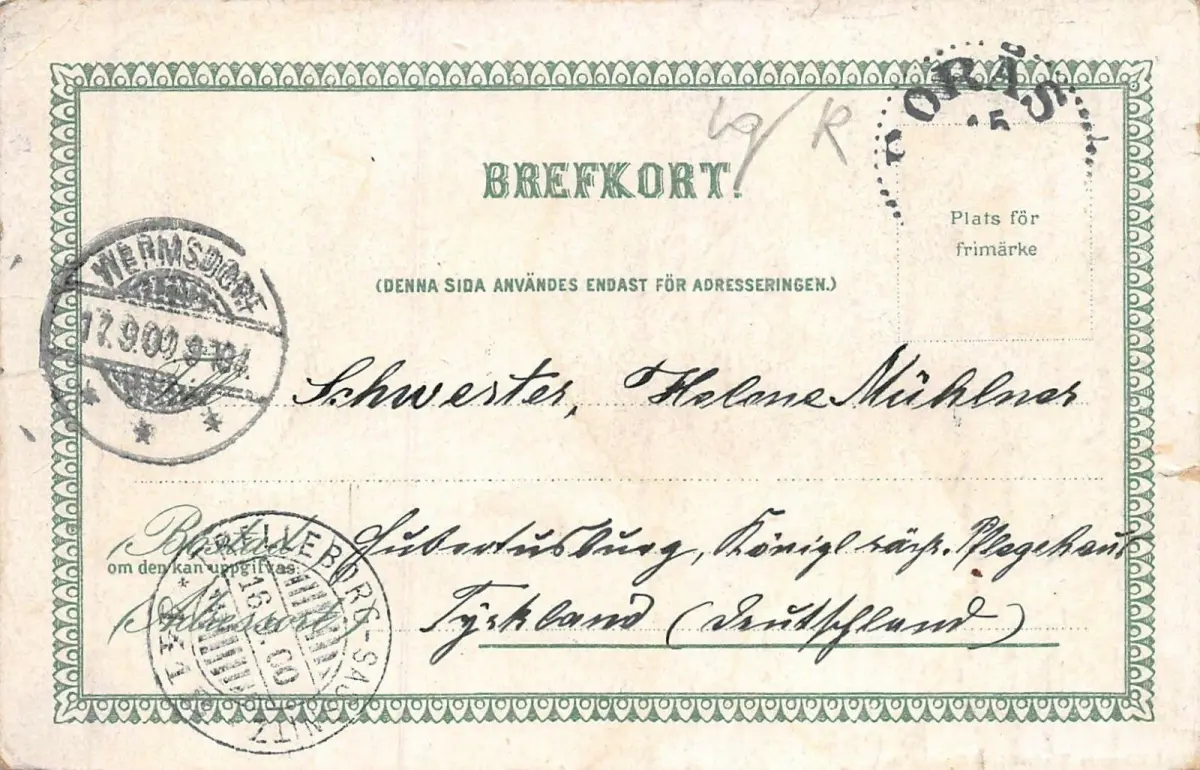 BORÅS
BREFKORT.
Plats för
frimärke
(DENNA SIDA ANVÄNDES ENDAST FÖR ADRESSERINGEN.)
WERMSDORF
17.9.00
Till
Schwester, Helene Mühlner
Bostad
om den kan uppgifvas.
Hubertusburg, Königl sächs. Pflegehaus
Adressort
Tyskland (Deutschland)
TRELLEBORG-SASSNITZ
16 9 00